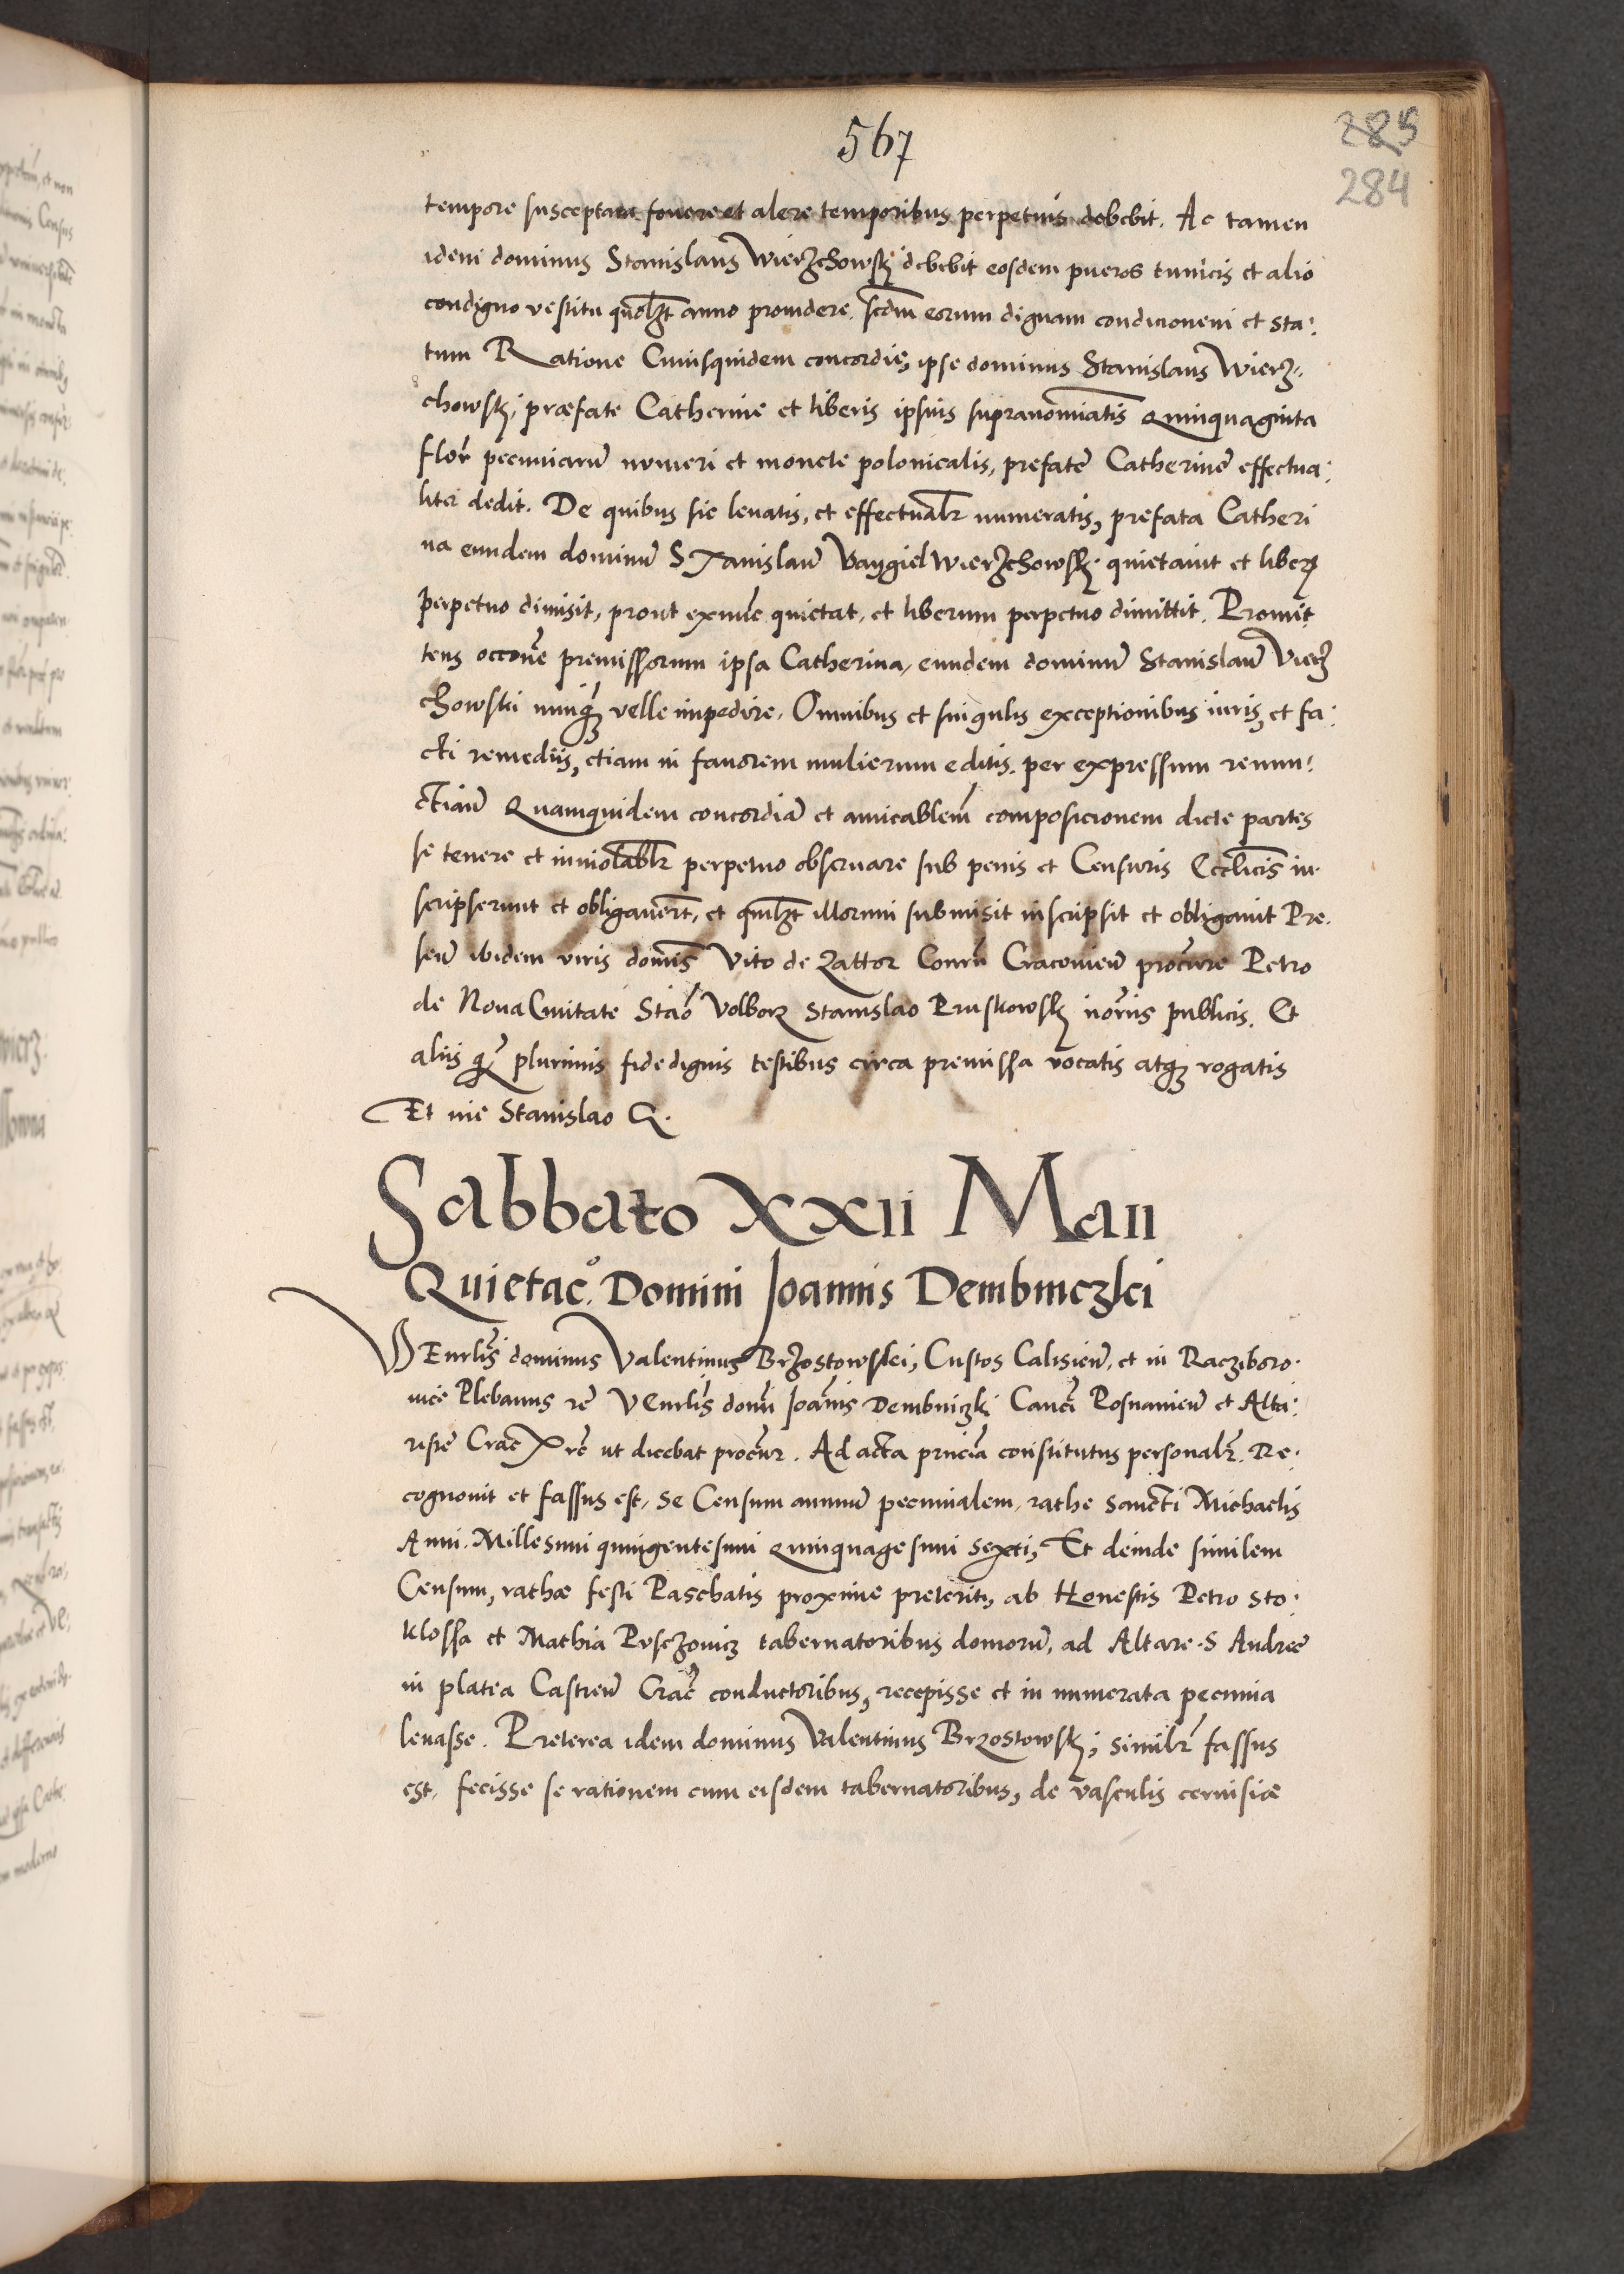 567
285
284
tempore susceptam fouere et alere temporibus perpetuis debebit. Ac tamen
idem dominus Stanislaus Wierzchowskj debebit eosdem pueros tunicis et alio
condigno vestitu quolȝt anno prouidere. scdm eorum dignam condicionem et sta:
tum Ratione Cuiusquidem concordie, ipse dominus Stanislaus Wierz-
chowskj, præfate Catherine et liberis ipsius supranomiatis Quinquaginta
flor pecuniarū numeri et monete polonicalis, prefate Catherine effectua:
liter dedit. De quibus sic leuatis, et effectualr numeratis, prefata Catheri
na eundem dominū Stanislaū Vaygiel Wierzchowskj quietauit et liberū
perpetuo dimisit, prout exnūc quietat, et liberum perpetuo dimittit. Promit
tens occone premissorum ipsa Catherina, eundem dominū Stanislaū Vierz
chowski nunqȝ velle impedire. Omnibus et singulis exceptionibus iuris et fa:
cti remediis, etiam in fauorem mulierum editis. per expressum renun:
ctiaū Quamquidem concordiā et amicablem composicionem dicte partes
se tenere et inuiolablr perpetuo obseruare sub penis et Censuris Ecclicis in
scripserunt et obligauert, et quilȝt illorum submisit inscripsit et obligauit Pre.
sen ibidem viris domis Vito de Zattor Consrii Cracouieñ procure Petro
de Noua Ciuitate Stao Volborz Stanislao Pruskowskj noriis publicis. Et
aliis qȝ plurimis fidedignis testibus circa premissa vocatis atqȝ rogatis
Et me Stanislao R.
Sabbato XXII Maii
Quietac. Domini Joannis Dembinczki
VEnrlis dominus Valentinus Brzostowskei, Custos Calisieñ, et in Racziboro.
uice Plebanus re VEnrlis domi Joanis Dembinczkj Canci Posnanieñ et Alta:
riste Crac Xre ut dicebat procur. Ad acta pncia constitutus personalr. Re.
cognouit et fassus est, se Censum annuū pecunialem, rathe Sancti Michaelis
Anni. Millesimi quingentesimi Quinquagesimi Sexti, Et deinde similem
Censum, rathæ festi Paschatis proxime preteriti, ab Honestis Petro Sto:
klossa et Mathia Pusczonicz tabernatoribus domorū, ad Altare S Andree
in platea Castreñ Crac conductoribus, recepisse et in numerata pecunia
leuasse. Preterea idem dominus Valentinus Brzostowskj, similr fassus
est, fecisse se rationem cum eisdem tabernatoribus, de vasculis ceruisiæ